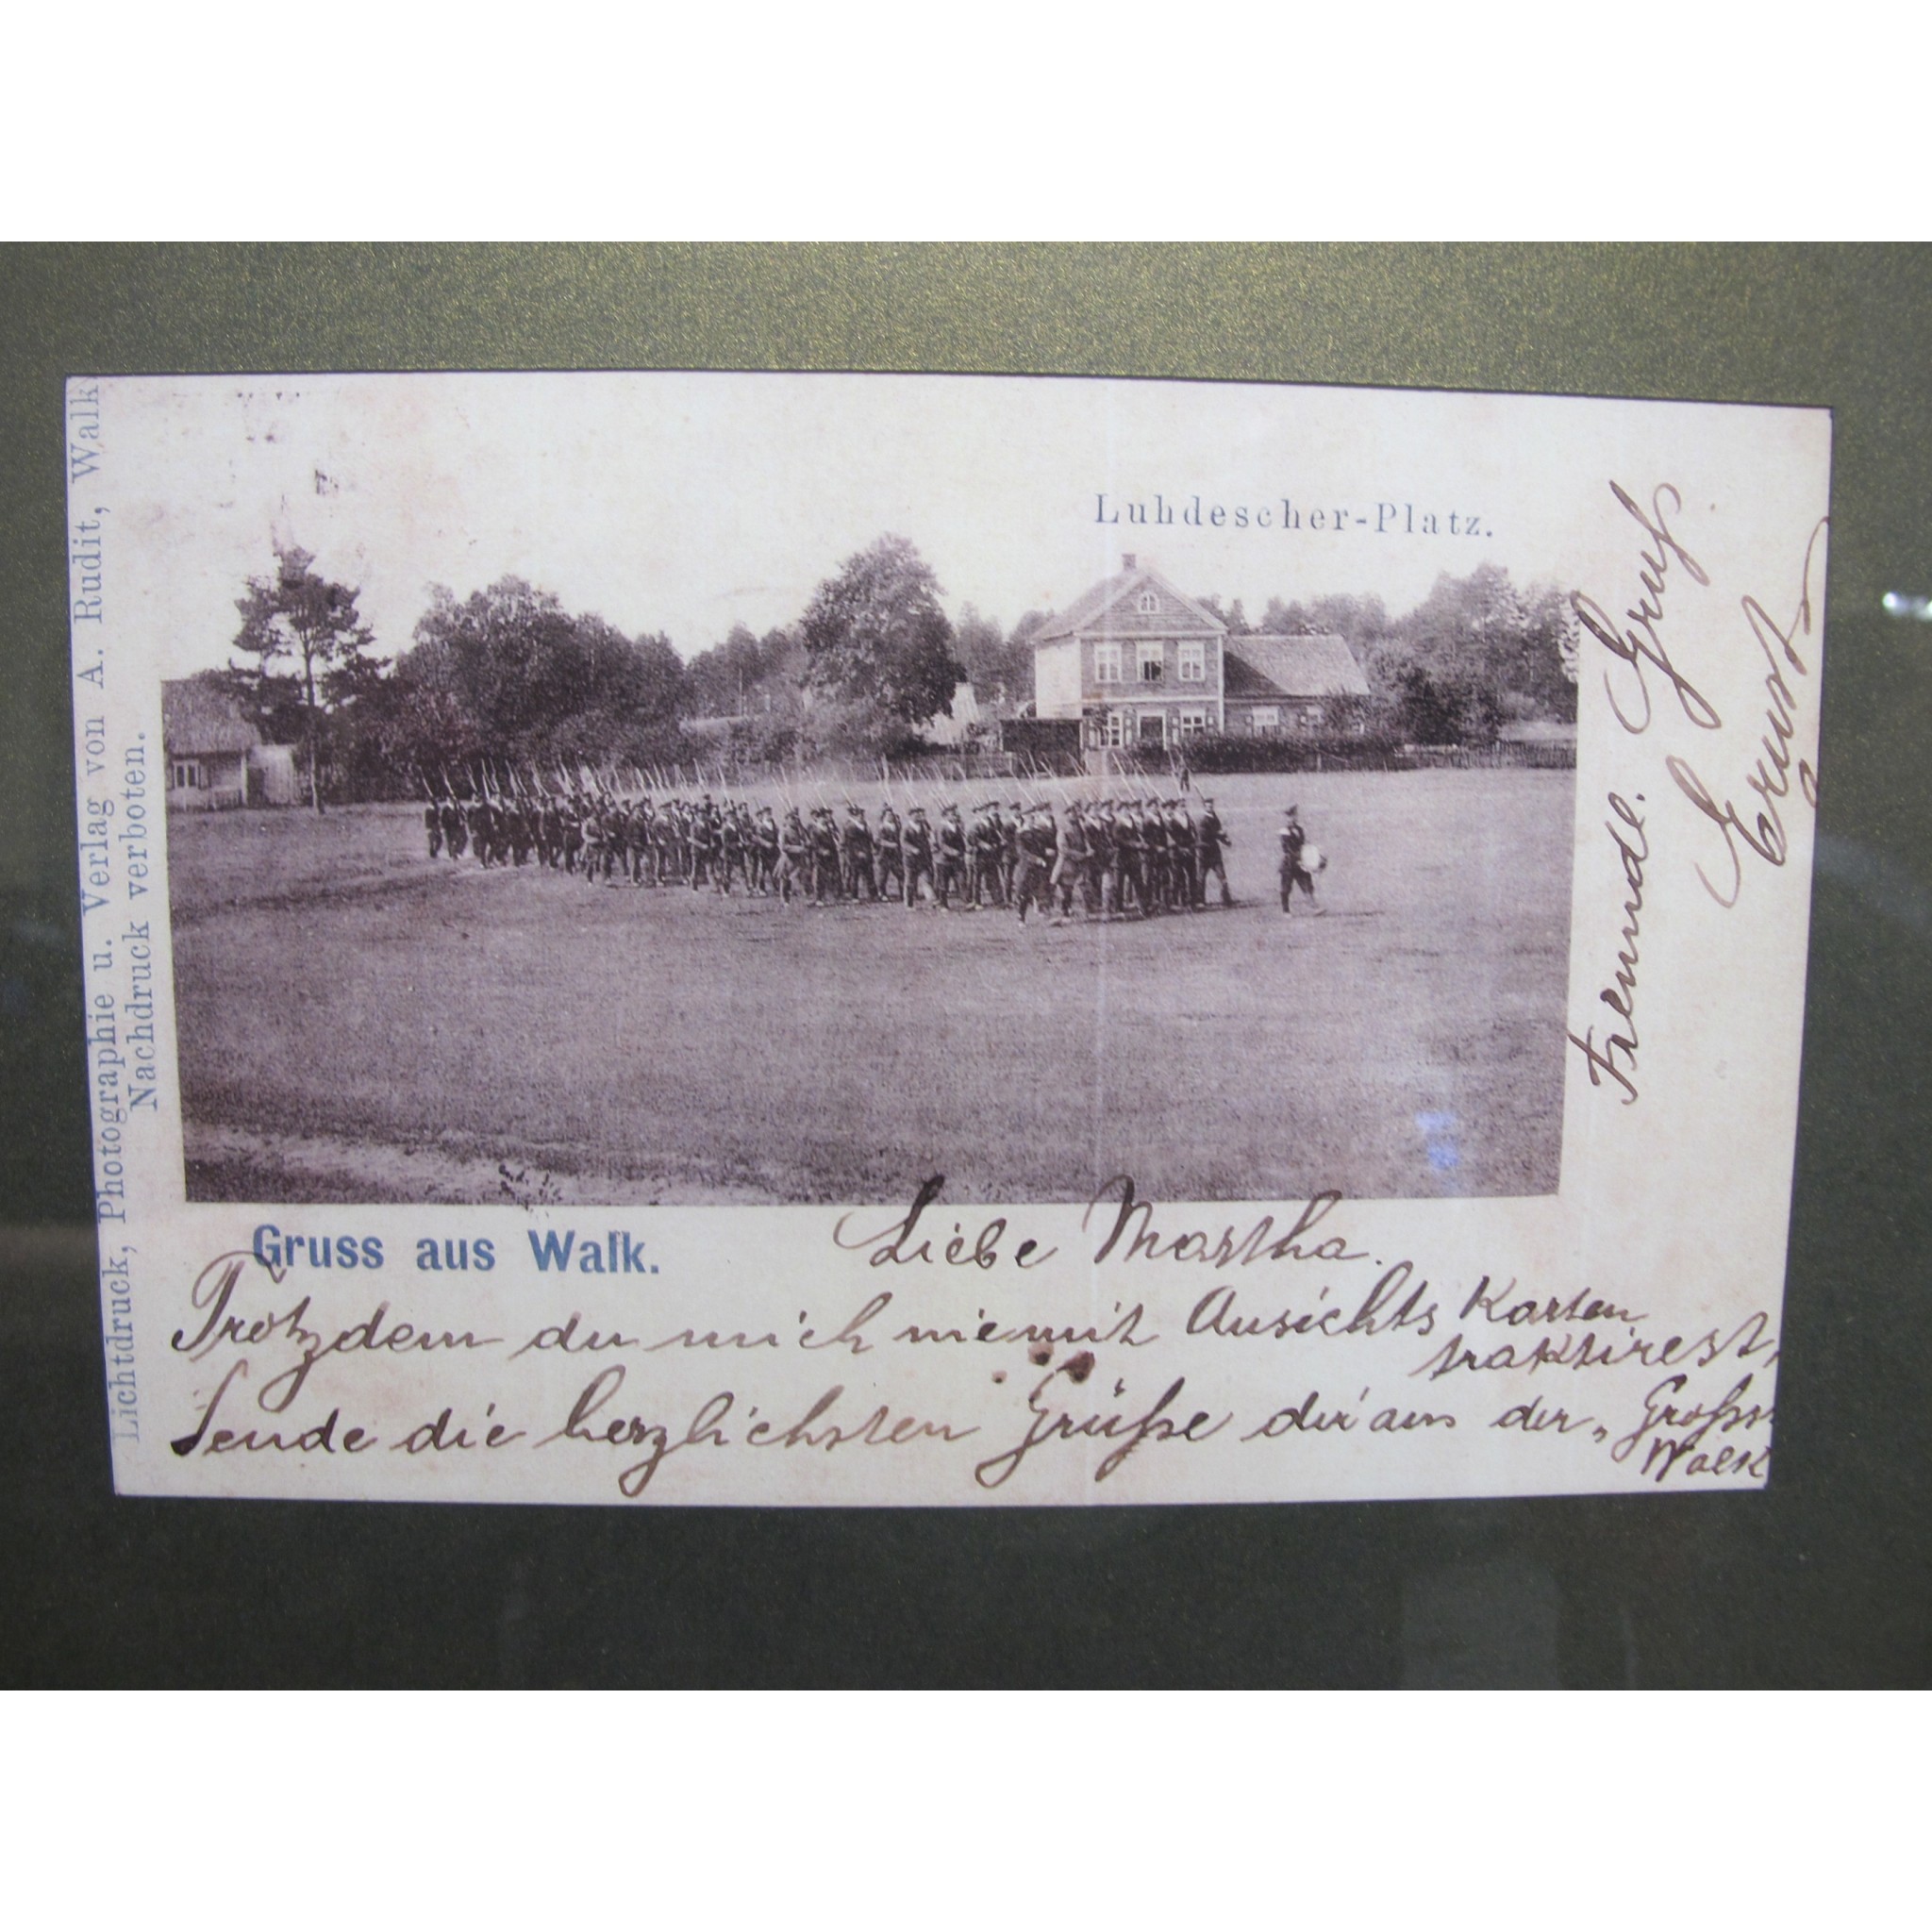 Lichtdruck, Photographie u. Verlag von A. Rudit, Walk
Nachdruck verboten.
Luhdescher-Platz.
Gruss aus Walk.
Liebe Martha.
Trotzdem du mich nie mit Ansichts Karten
traktirest,
Sende die herzlichsten Grüße dir aus der „Gross
Walk
Fremde. Gruß
Ernst